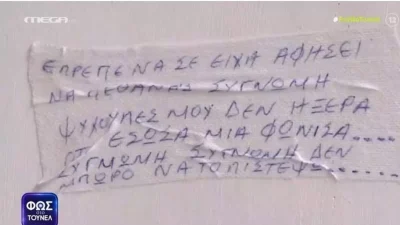 MEGA
ΕΠΡΕΠΕ ΝΑ ΣΕ ΕΙΧΑ ΑΦΗΣΕΙ
ΝΑ ΠΕΘΑΝΕΙΣ ΣΥΓΝΟΜΗ
ΨΥΧΟΥΛΕΣ ΜΟΥ ΔΕΝ ΗΞΕΡΑ
ΕΣΩΣΑ ΜΙΑ ΦΩΝΙΣΑ.....
ΣΥΓΜΩΝΗ ΣΥΓΝΩΜΗ ΔΕΝ
ΜΠΩΡΟ ΝΑ ΤΟ ΠΙΣΤΕΨΩ......
ΦΩΣ
ΣΤΟ
ΤΟΥΝΕΛ